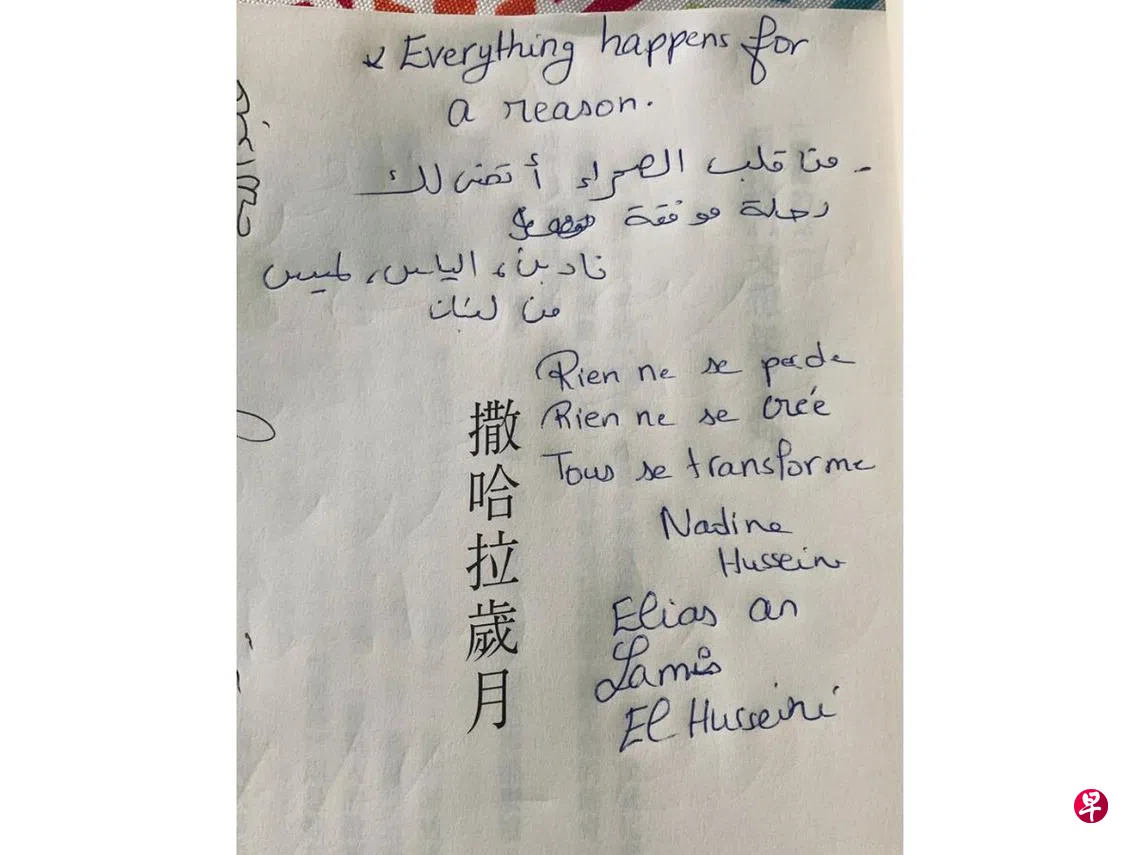 Everything happens for
a reason.
- من قلب الصحراء أتمنى لك
رحلة موفقة
نادين، الياس، لميس
من لبنان
Rien ne se perde
Rien ne se crée
Tous se transforme
撒哈拉歲月
Nadine
Hussein
Elias an
Lamis
El Husseini
早